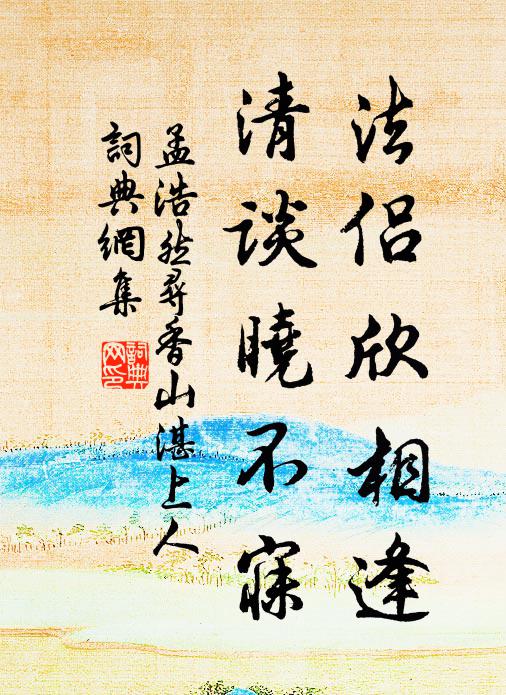 法侶欣相逢
清談曉不寐
孟浩然尋香山湛上人
詞典網集
詞典
网印